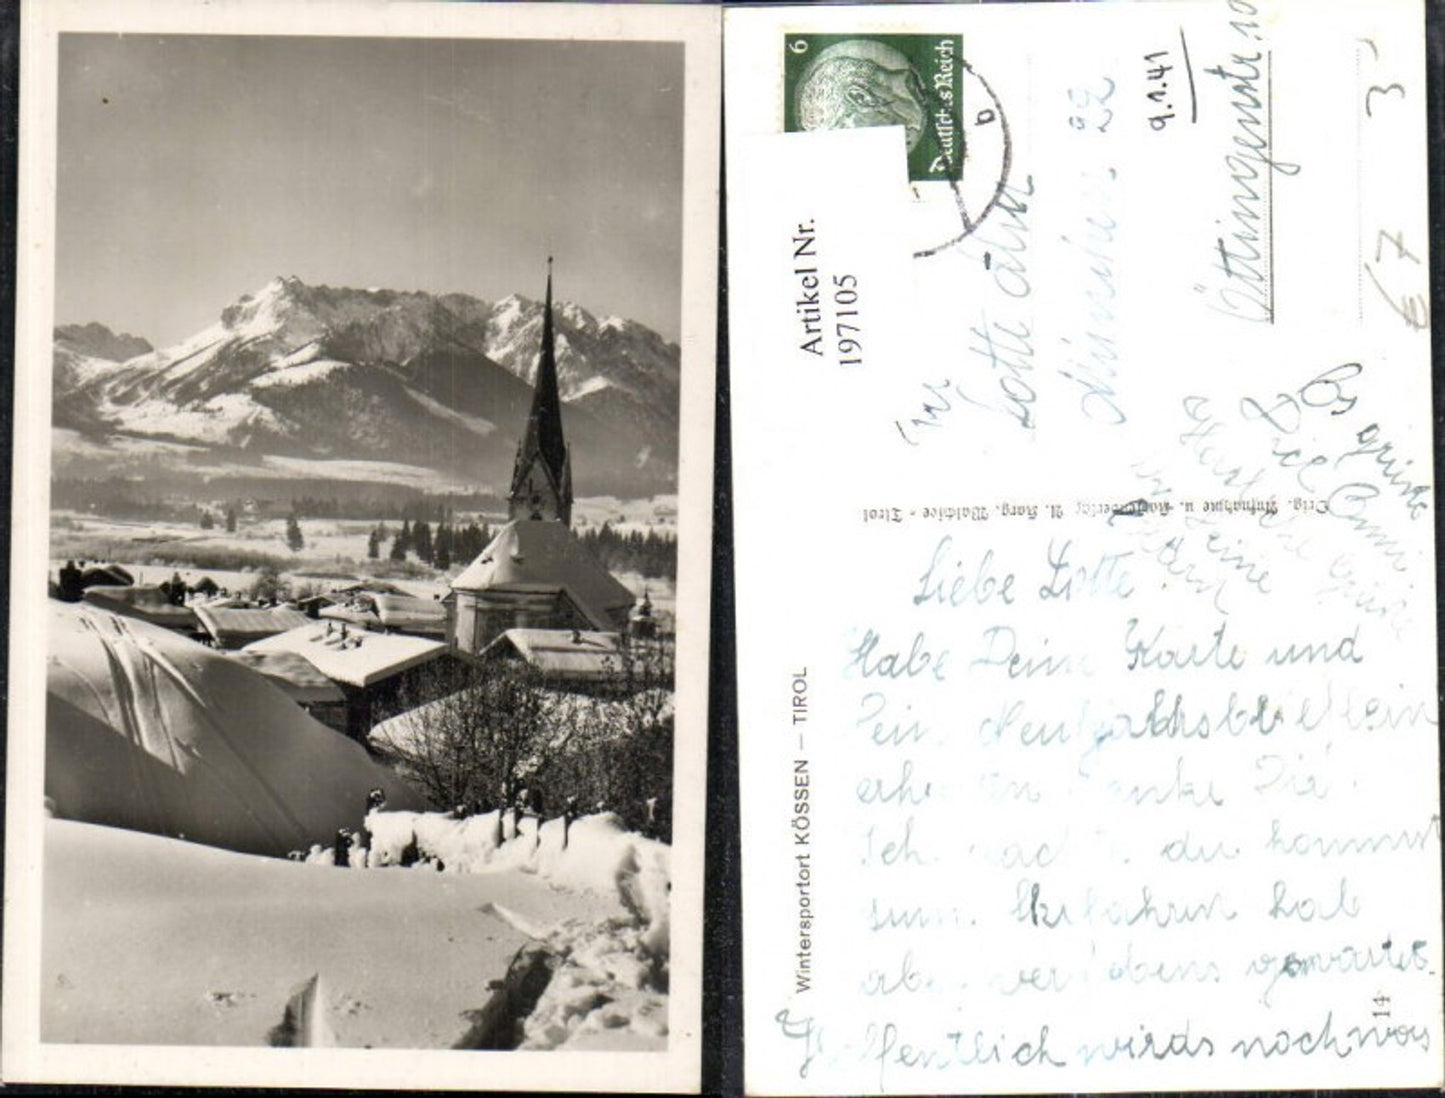 6
Deutsches Reich
b
9.1.41
3
€7
Artikel Nr.
197105
Lotte
München 22
Öttingenstr. 10
Orig. Aufnahme u. Kartenverlag A. Karg. Walchsee - Tirol
Wintersportort KÖSSEN – TIROL
14
Liebe Lotte!
Habe Deine Karte und
Dein Neujahrsbrieflein
erhalten Danke Dir.
Ich dachte du kommst
zum Skifahren hab
aber vergebens gewartet.
Hoffentlich wirds noch was
Es grüßt